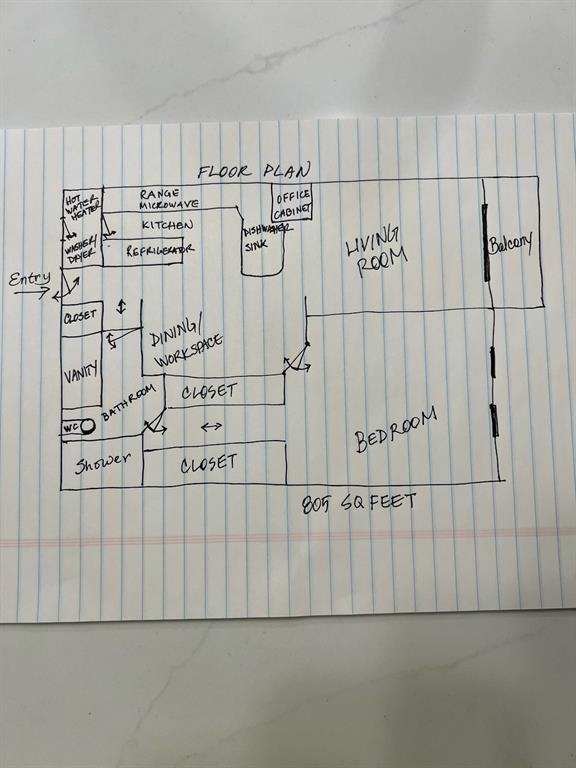 FLOOR PLAN
HOT
WATER
HEATER
RANGE
MICROWAVE
OFFICE
CABINET
KITCHEN
DISHWASHER
SINK
WASHER/
DRYER
REFRIGERATOR
LIVING
ROOM
Balcony
Entry
CLOSET
DINING/
WORKSPACE
VANITY
BATHROOM
CLOSET
WC
BEDROOM
Shower
CLOSET
805 SQ FEET